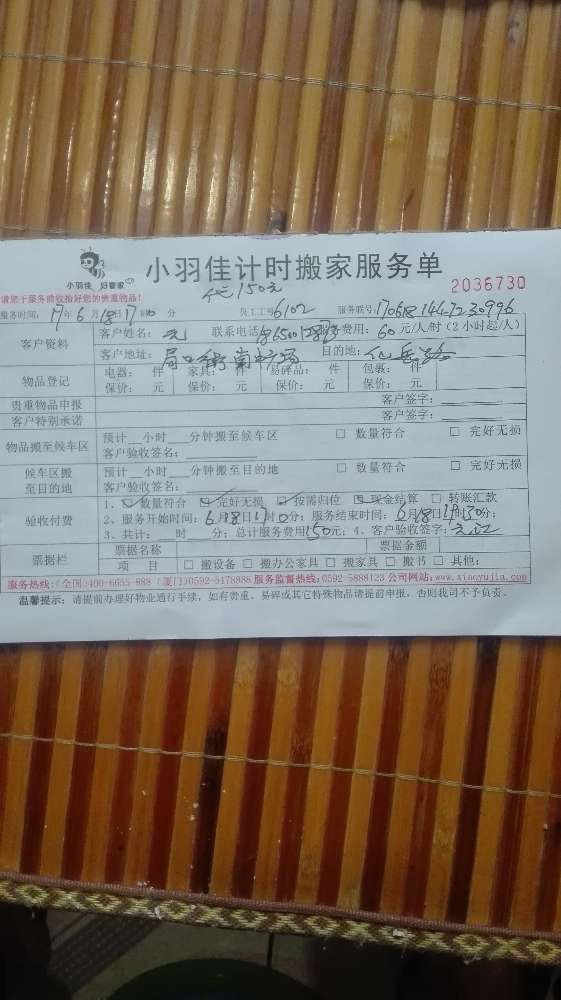 小羽佳 好管家
小羽佳计时搬家服务单
2036730
请您于服务前收拾好您的贵重物品!
150元
服务时间: 17年6月18日17时 分 员工工号6102 服务联号:
客户资料
客户姓名: 联系电话 服务费用: 60元/人/时 (2小时起/人)
客户地址: 目的地:
物品登记
电器: 件 家具: 件 易碎品: 件 包裹: 件
保价: 元 保价: 元 保价: 元 保价: 元
贵重物品申报 客户签字:
客户特别承诺 客户签字:
物品搬至候车区
预计__小时___分钟搬至候车区 □ 数量符合 □ 完好无损
客户验收签名:
候车区搬至目的地
预计__小时___分钟搬至目的地 □ 数量符合 □ 完好无损
客户验收签名:
验收付费
1、☑数量符合 ☑完好无损 ☑按需归位 ☑现金结算 □ 转账汇款
2、服务开始时间: 6月18日 时 0分; 服务结束时间: 6月18日 时30分;
3、共计: 时 分; 总计服务费用150元; 4、客户验收签字:
票据栏
票据名称 票据金额
项 目 □ 搬设备 □ 搬办公家具 □ 搬家具 □ 搬书 □ 其他:
服务热线:(全国)400-6655-888 (厦门)0592-5178888 服务监督热线:0592-5888123 公司网站:www.xiaoyujia.com
温馨提示: 请提前办理好物业通行手续, 如有贵重、易碎或其它特殊物品请提前申报, 否则我司不予负责。